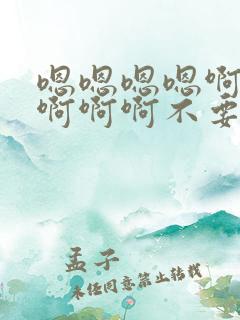 嗯嗯嗯嗯啊
啊啊啊不要
孟子
未经同意禁止转载